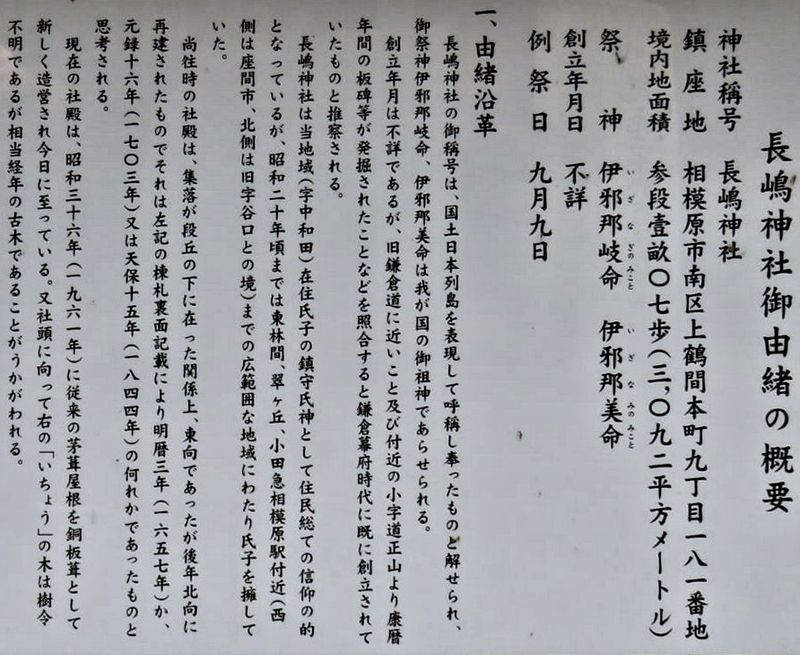 長嶋神社御由緒の概要
神社稱号　長嶋神社
鎮座地　相模原市南区上鶴間本町九丁目一八一番地
境内地面積　参段壹畝〇七歩(三,〇九二平方メートル)
祭神　伊邪那岐命　伊邪那美命
いざなぎのみこと　いざなみのみこと
創立年月日　不詳
例祭日　九月九日
一、由緒沿革
長嶋神社の御稱号は、国土日本列島を表現して呼稱し奉ったものと解せられ、
御祭神伊邪那岐命、伊邪那美命は我が国の御祖神であらせられる。
創立年月は不詳であるが、旧鎌倉道に近いこと及び付近の小字道正山より康暦
年間の板碑等が発掘されたことなどを照合すると鎌倉幕府時代に既に創立されて
いたものと推察される。
長嶋神社は当地域(字中和田)在住氏子の鎮守氏神として住民総ての信仰の的
となっているが、昭和二十年頃までは東林間、翠ヶ丘、小田急相模原駅付近(西
側は座間市、北側は旧字谷口との境)までの広範囲な地域にわたり氏子を擁して
いた。
尚往時の社殿は、集落が段丘の下に在った関係上、東向であったが後年北向に
再建されたものでそれは左記の棟札裏面記載により明暦三年(一六五七年)か、
元録十六年(一七〇三年)又は天保十五年(一八四四年)の何れかであったものと
思考される。
現在の社殿は、昭和三十六年(一九六一年)に従来の茅葺屋根を銅板葺として
新しく造営され今日に至っている。又社頭に向って右の「いちょう」の木は樹令
不明であるが相当経年の古木であることがうかがわれる。